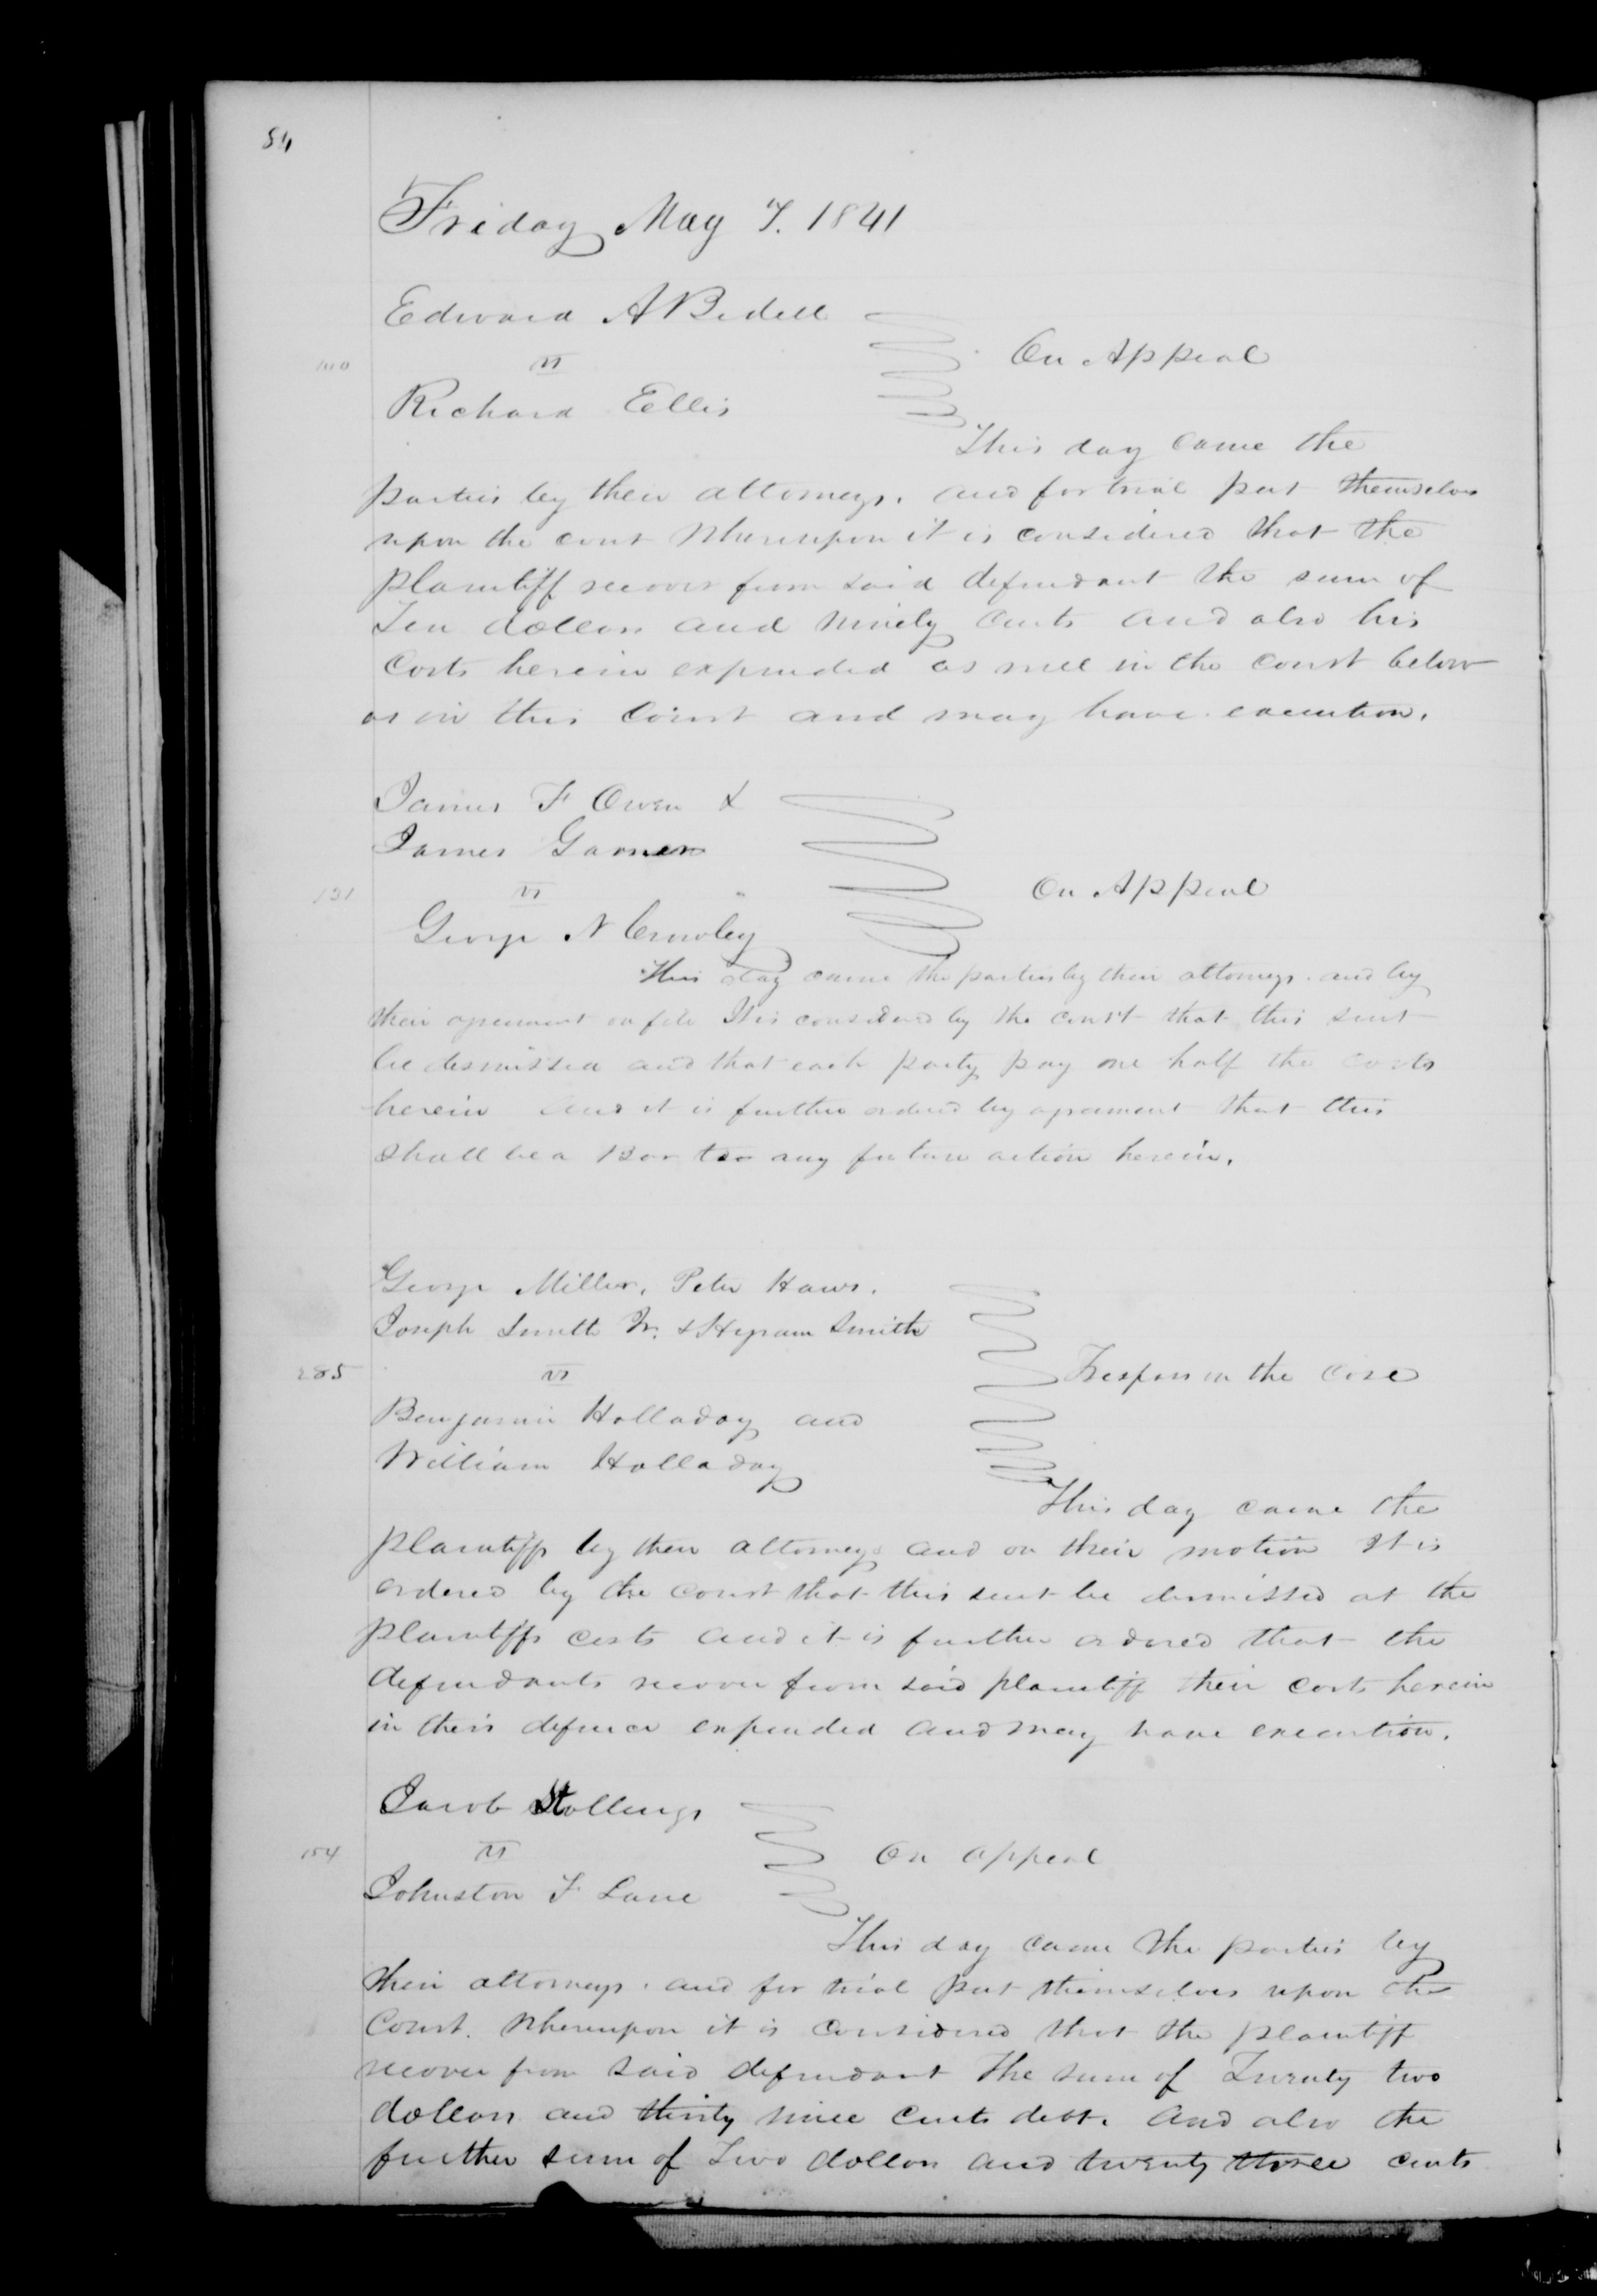 54
Friday May 7. 1841
Edward A Bedell
vs
On Appeal
Richard Ellis
This day came the
parties by their attorneys. and for trial put themselves
upon the court Whereupon it is considered that the
plaintiff recover from said defendant the sum of
Ten dollars and ninety cents and also his
costs herein expended as well in the court below
as in this court and may have execution.
James F Owen &
James Garner
131
vs
On Appeal
George N Crowley
This day came the parties by their attorneys. and by
their agreement on file It is considered by the court that this suit
be dismissed and that each party pay one half the costs
herein and it is further ordered by agreement that this
shall be a Bar to any future action herein.
George Miller, Peter Haws.
Joseph Smith Jr. & Hyram Smith
285
vs
Trespass on the case
Benjamin Holladay and
William Holladay
This day came the
plaintiffs by their attorneys and on their motion It is
ordered by the court that this suit be dismissed at the
plaintiffs costs and it is further ordered that the
defendants recover from said plaintiff their costs herein
in their defence expended and may have execution.
Jacob Stollings
154
vs
On appeal
Johnston F Lane
This day came the parties by
their attorneys. and for trial put themselves upon the
Court. Whereupon it is considered that the plaintiff
recover from said defendant the sum of Twenty two
dollars and thirty nine cents debt. and also the
further sum of Two dollars and twenty three cents